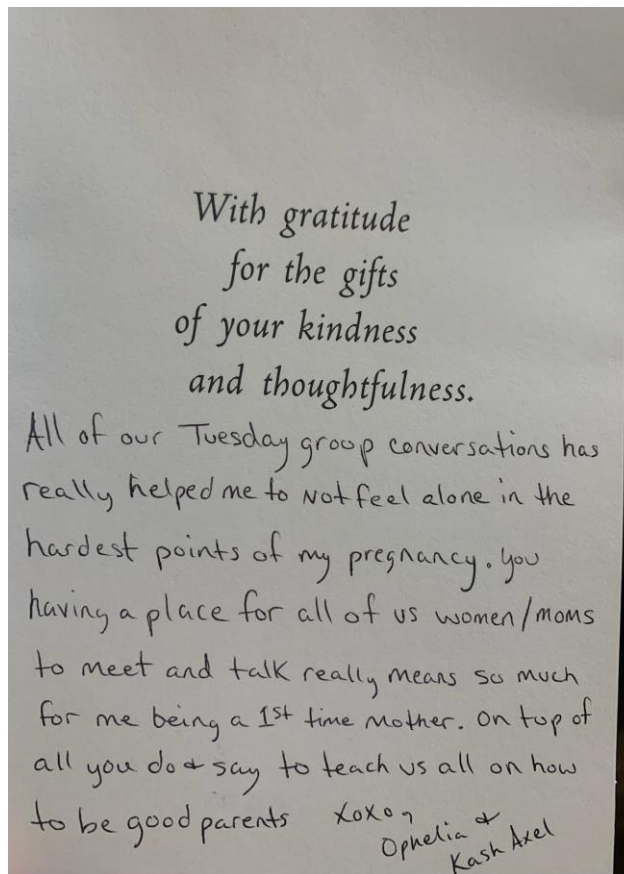 With gratitude
for the gifts
of your kindness
and thoughtfulness.
All of our Tuesday group conversations has
really helped me to Not feel alone in the
hardest points of my pregnancy. you
having a place for all of us women/moms
to meet and talk really means so much
for me being a 1st time Mother. On top of
all you do & say to teach us all on how
to be good parents xoxo,
Ophelia &
Kash Axel